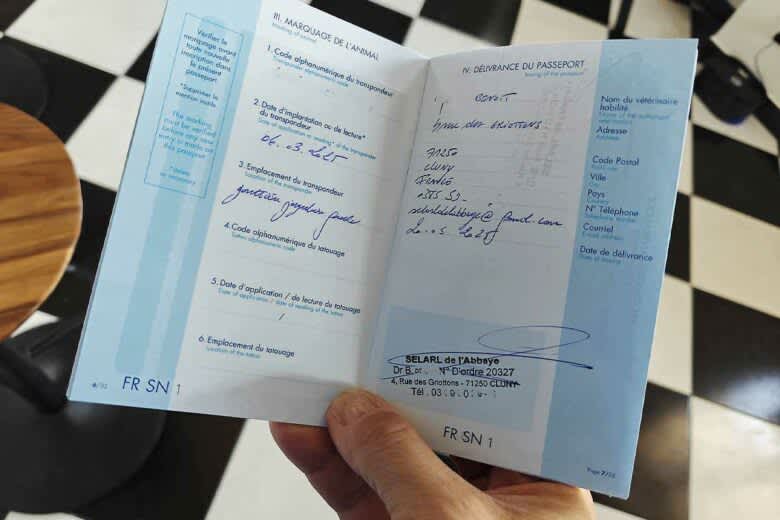 Vérifier le
marquage avant
toute nouvelle
inscription dans
le présent
passeport
*Supprimer la
mention inutile
The marking
must be verified
before any
new entry is
made on
this passport
* delete
as necessary
III. MARQUAGE DE L'ANIMAL
Marking of animal
1. Code alphanumérique du transpondeur
Transponder alphanumeric code
2. Date d'implantation ou de lecture*
du transpondeur
Date of application or reading* of the transponder
06.03.2025
3. Emplacement du transpondeur
Location of the transponder
gouttière jugulaire gauche
4. Code alphanumérique du tatouage
Tattoo alphanumeric code
5. Date d'application / de lecture du tatouage
Date of application / date of reading of the tattoo
/
6. Emplacement du tatouage
Location of the tattoo
6/32
FR SN 1
IV. DÉLIVRANCE DU PASSEPORT
Issuing of the passport
BENOIT
rue des GRIOTTONS
71250
CLUNY
FRANCE
0385 59
selarldelabbaye@gmail.com
Nom du vétérinaire
habilité
Name of the authorised
veterinarian
Adresse
Address
Code Postal
Post-code
Ville
City
Pays
Country
N° Téléphone
Telephone number
Courriel
E-mail address
Date de délivrance
Date of issuing
SELARL de l'Abbaye
Dr B N° D'ordre 20327
4, Rue des Griottons - 71250 CLUNY
Tél. 03
FR SN 1
Page 7/32